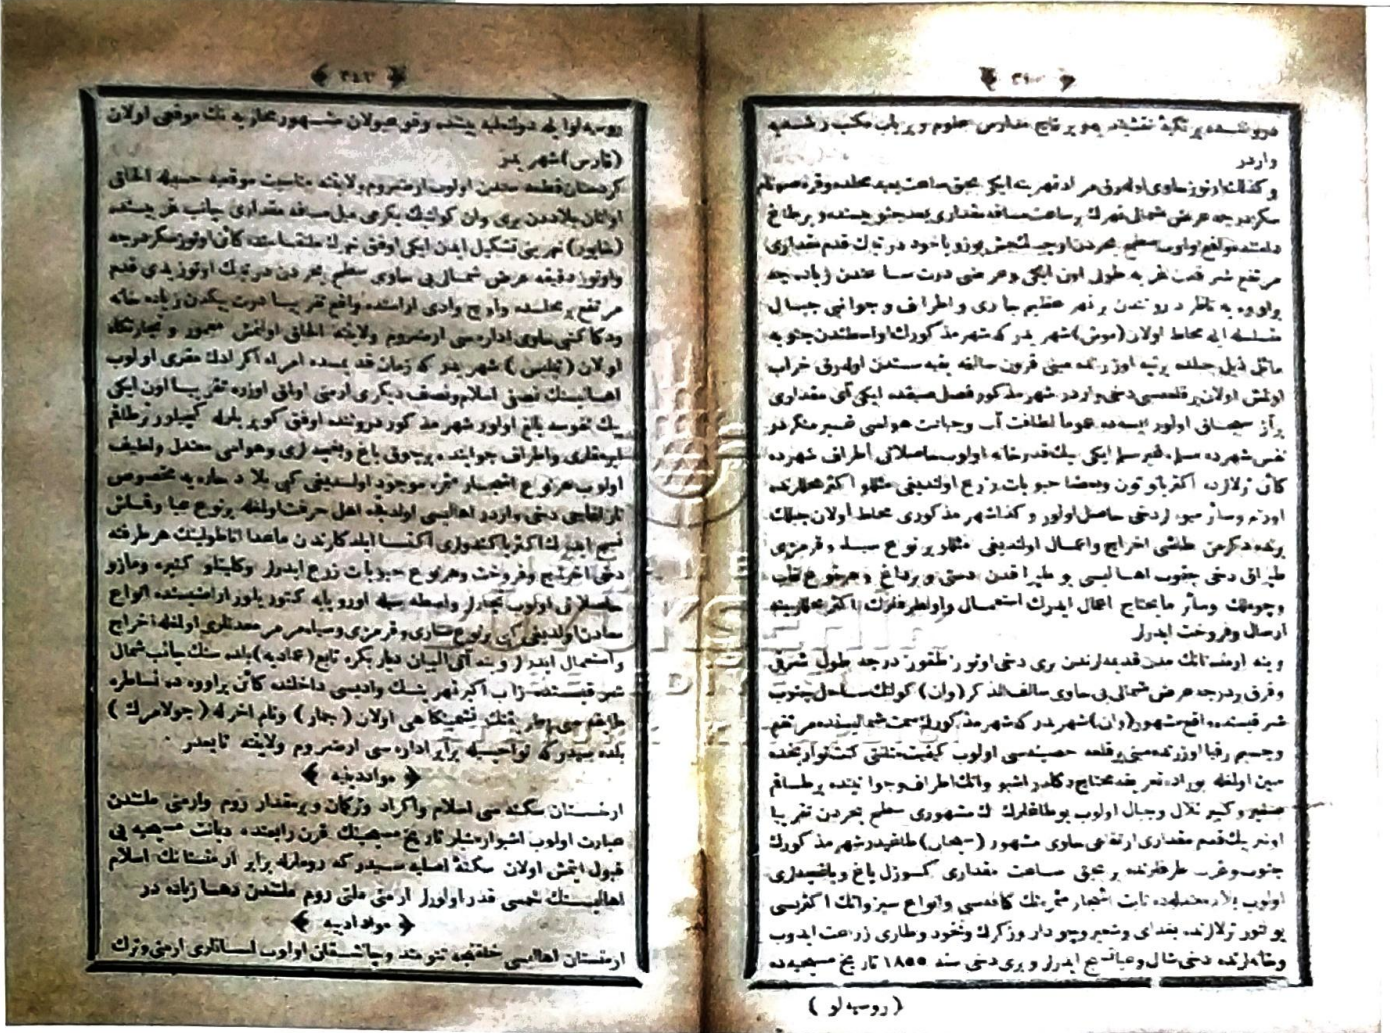 درونـنـده بر تكیهٔ نقشبندیه و بر قاچ مدارس علوم و بر باب مكتب رشدیه
واردر
سكز درجه عرض شمالی نهرك بر ساعت مسافه مقداری بعد جنوبیسنده و بر طاغ
دامننده واقع اولوب سطح بحردن اوچ بیك بش یوز یاخود درت بیك قدم مقداری
مرتفع شرقدن غربه طولی اون ایكی و عرضی درت ساعتدن زیاده جه
بر اووه یه ناظر دروننـدن بر نهر عظیم جاری و اطراف و جوانبی جبال
متسلسله ایله محاط اولان (موش) شهریدر كه شهر مذكورك اواسطندن جنوبه
مائل ذیل جبلده بر تپه اوزرنده مبنی قرون سالفه بقیه سندن اولدرق خراب
اولمش اولان بر قلعه سی دخی واردر شهر مذكور فصل صیفده ایكی آی مقداری
بر آز سیجاق اولور ایسه ده عموماً لطافت آب و جهانت هواسی غیر منكردر
نفس شهرده مسلم و غیر مسلم ایكی بیك قدر خانه اولوب حاصلاتی أطراف شهرده
كائن ترلالرده اكثریا توتون و بعض حبوبات زرع اولندیغی مثللو اكثر محللرنده
اوزم و سائر میوه لر دخی حاصل اولور و كذا شهر مذكوری محاط أولان جبلك
برنده دكرمن طاشی اخراج و اعمال اولندیغی مثللو بر نوع سیاه و قرمزی
طپراق دخی چقوب اهالیسی بو طپراقدن دستی و بارداغ و هر نوع قاب
و چوملك و سائر مایحتاج اعمال ایدرك استعمال و اول طرفلرك اكثر محللرینه
ارسال و فروخت ایدرلر
وینه ارمنستانك مدن قدیمه لرندن بری دخی اوتوز طقوز درجه طول شرقی
و قرق بر درجه عرض شمالی یی حاوی سالف الذكر (وان) كولنك ساحل جنوب
شرقیسنده واقع مشهور (وان) شهریدر كه شهر مذكورك سمت شمالیسنده مرتفع
و جسیم بر قیا اوزرنده مبنی بر قلعهٔ حصینه سی اولوب كیفیت منشئی كتب تواریخده
مبین اولغله بوراده تعریفه محتاج دكلدر اشبو وانك اطراف و جوانبنده بر طاقم
صغیر و كبیر تلال و جبال اولوب بو طاغلرك اك مشهوری سطح بحردن تقریباً
اون بیك قدم مقداری ارتفاعی حاوی مشهور (سیپان) طاغیدر شهر مذكورك
جنوب و غرب طرفلرنده بر بحق ساعت مقداری كوزل باغ و باغچه لری
اولوب بلاد معتدله ده نابت اشجار مثمره نك كافه سی و انواع سبزواتك اكثریسی
بولنور ترلالرنده بغدای و شعیر و چودار و زكرك و نخود و طاری زراعت ایدوب
و خانه لرنده دخی شال و عبا نسج ایدرلر و بری دخی سنه ١٨٥٥ تاریخ مسیحیه ده
( روسیه لو )
﴿ ٣٤٢ ﴾
روسیه لو ایله دولتعلیه بیننده وقوعبولان مشهور محاربه نك موقعی اولان
(قارص) شهریدر
كردستان قطعه سندن اولوب ارضروم ولایتنه مناسبت موقعیه حسبیله الحاق
اولنان بلاددن بری وان كولنك یكرمی میل مسافه مقداری جانب غربیسنده
(خابور) نهرینی تشكیل ایدن ایكی اوفق نهرك ملتقاسنده كائن اوتوز سكز درجه
و اوتوز دقیقه عرض شمالی یی حاوی سطح بحردن درت بیك اوتوز یدی قدم
مرتفع بر محلده و اوچ وادی اراسنده واقع تقریباً درت بیكدن زیاده خانه
و دكاكینی حاوی اداره سی ارضروم ولایتنه الحاق اولنمش معمور و تجارتكاه
اولان (بتلیس) شهریدر كه زمان قدیمده امراء اكرادك مقری اولوب
اهالیسنك نصفی اسلام و نصف دیكری ارمنی اولمق اوزره تقریباً اون ایكی
بیك نفوسه بالغ اولور شهر مذكور دروننده اوفق كوپریلرله كچیلور بر طاقم
ایرماقلری و اطراف جوانبنده بر چوق باغ و باغچه لری و هواسی معتدل و لطیف
اولوب هر نوع اشجار مثمره موجود اولدیغی كبی بلاد حاره یه مخصوص
نار اغاجی دخی واردر اهالیسی اولدقجه اهل حرفت اولمغله بر نوع عبا و قماش
نسج ایدرك اكثریا كندولری اكتسا ایلدكلرندن ماعدا اناطولینك هر طرفنه
دخی اخراج و فروخت و هر نوع حبوبات زرع ایدرلر و كلیتلو كتیره و مازو
حاصلاتی اولوب تجارلر واسطه سیله اوروپایه كتوریلور اراضیسنده انواع
معادن اولدیغی كبی بر نوع صاری و قرمزی و سیاه مرمر معدنلری اولمغله اخراج
و استعمال ایدرلر وینه آتی البیان دیاربكره تابع (عمادیه) بلده سنك جانب شمال
شرقیسنده زاب اكبر نهرینك وادیسی داخلنده كائن بر اووه ده نساطره
طائفه سی بطریقنك نشیمنكاهی اولان (جمار) و نام اخرله (جولامرك)
بلده سیدر كه نواحیسیله برابر اداره سی ارضروم ولایتنه تابعدر
﴿ مواد دینیه ﴾
ارمنستان سكنه سی اسلام و اكراد و تركمان و بر مقدار روم و ارمنی ملتندن
عبارت اولوب اشبو ارمنیلر تاریخ مسیحینك قرن رابعنده دیانت مسیحیه یی
قبول ایتمش اولان سكنهٔ اصلیه سیدر كه روملرله برابر ارمنستانك اسلام
اهالیسنك خمسی قدر اولورلر ارمنی ملتی روم ملتندن دها زیاده در
﴿ مواد ادبیه ﴾
ارمنستان اهالیسی خلقةً تنومند و چالشقان اولوب لسانلری ارمنی و ترك